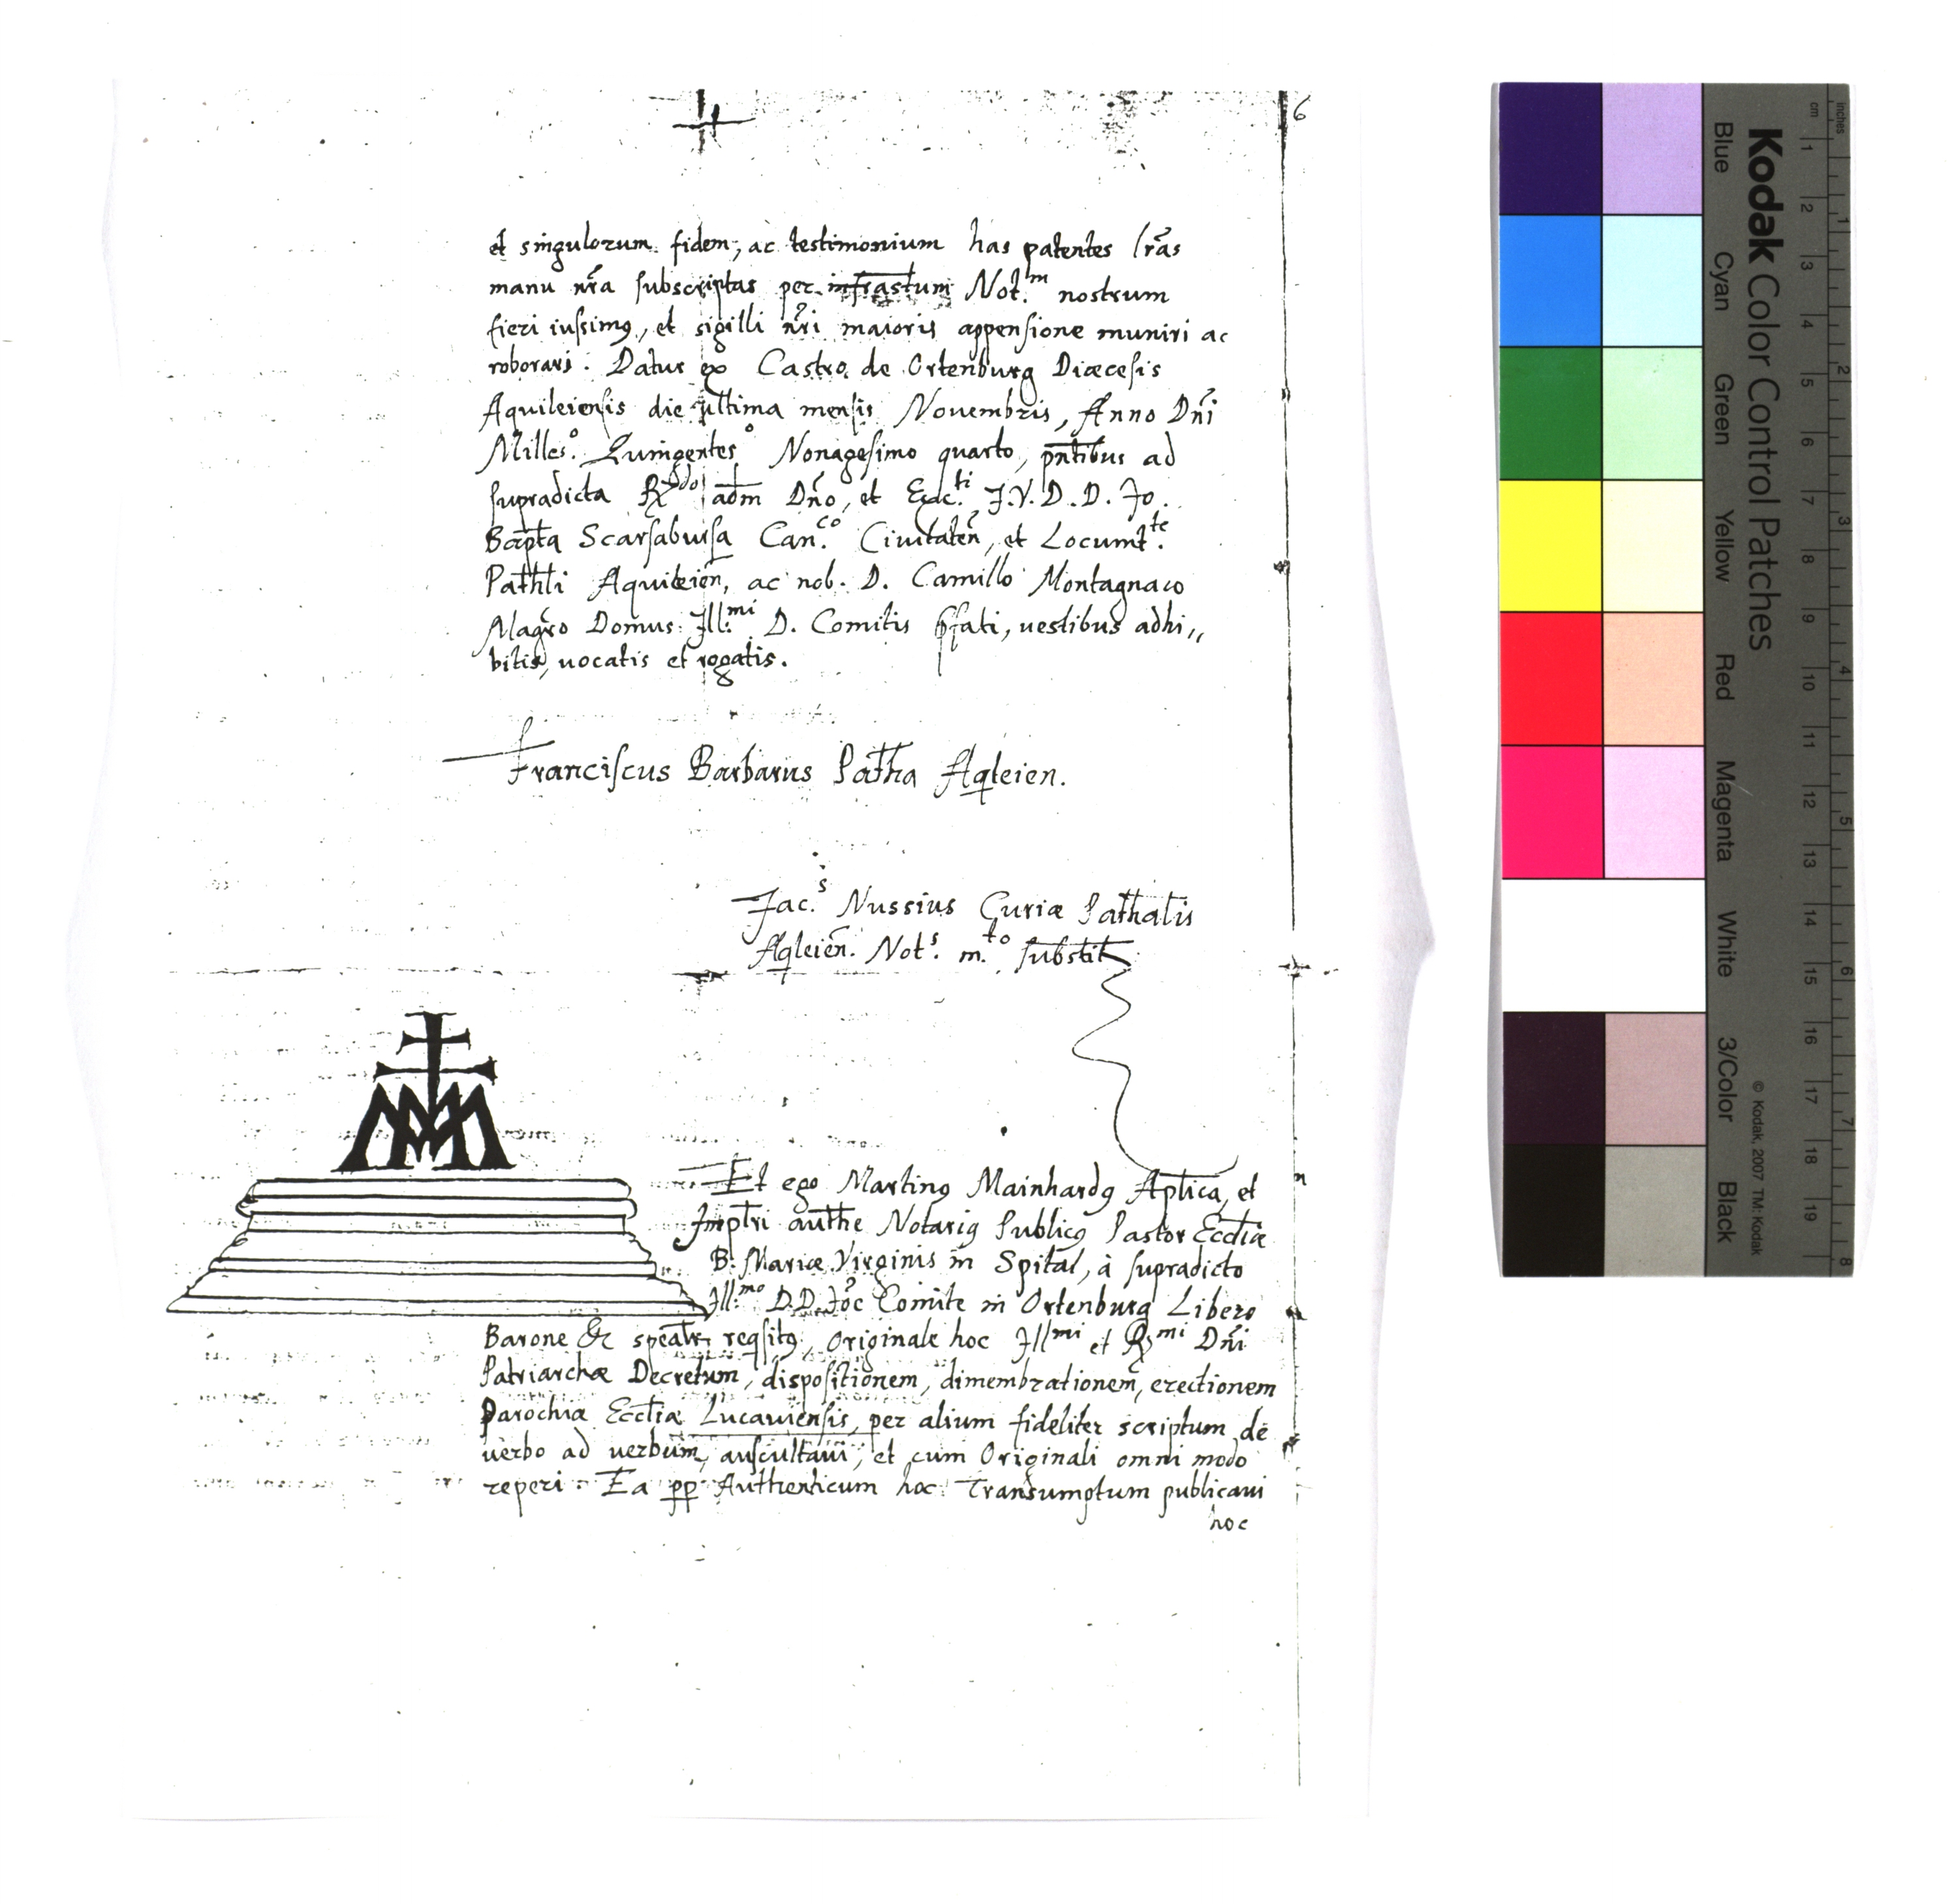 6
et singulorum fidem, ac testimonium has patentes l̃ras
manu ñra subscriptas per infrastum Not.m nostrum
fieri iussimꝯ, et sigilli ñri maioris appensione muniri ac
roborari. Datur ex Castro de Ortenburg Diœcesis
Aquileiensis die ultima mensis Nouembris, Anno Dñi
Milles.o Quingentes.o Nonagesimo quarto, pñtibus ad
supradicta Rdo adm Dño, et Exc.ti J.V.D.D. Jo.
Bapta Scarsabursa Can.co Ciuitateñ, et Locumt.te
Pathli Aquileieñ, ac nob. D. Camillo Montagnaco
Magro Domus Ill.mi D. Comitis pfati, uestibus adhi„
bitis, uocatis et rogatis.
Franciscus Barbarus Patha Aqleien.
Jac.s Nussius Curiæ Pathalis
Aqleien. Not.s m.to substit
Et ego Martinꝯ Mainhardꝯ Aptica, et
Imptri authe Notariꝯ Publicꝯ Pastor Ecctiæ
B. Mariæ Virginis in Spital, à supradicto
Ill.mo D.D. Joc Comite in Ortenburg Libero
Barone &c reqsitꝯ, Originale hoc Illmi et Rmi Dñi
Patriarchæ Decretum, dispositionem, dimembrationem, erectionem
Parochiæ Ecctiæ Lucauiensis, per alium fideliter scriptum de
uerbo ad uerbum, auscultaui, et cum Originali omni modo
reperi. Ea pp Authenticum hoc Transumptum publicaui
hoc
Kodak Color Control Patches
Blue Cyan Green Yellow Red Magenta White 3/Color Black
© Kodak, 2007 TM: Kodak
inches 1 2 3 4 5 6 7 8
cm 1 2 3 4 5 6 7 8 9 10 11 12 13 14 15 16 17 18 19